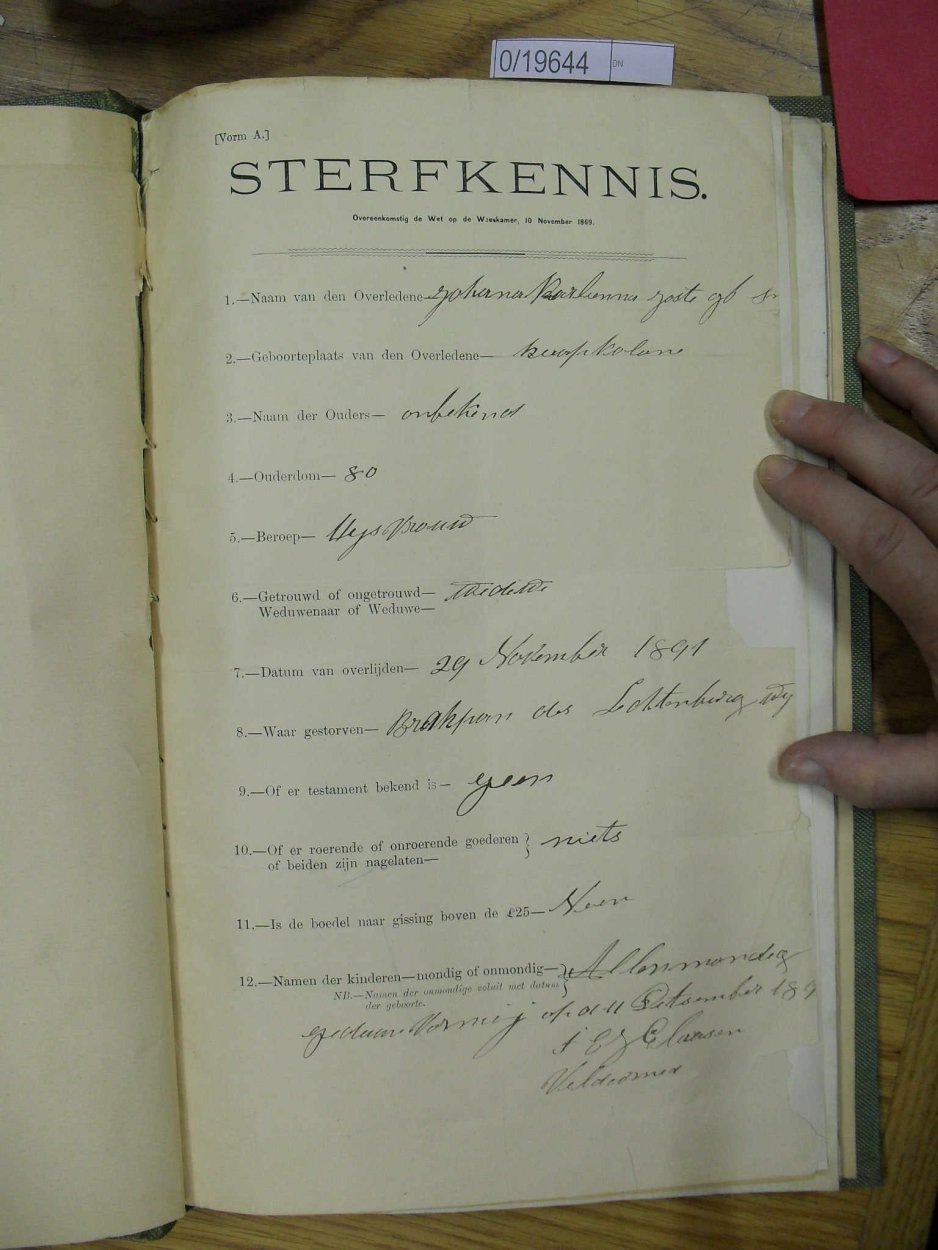 0/19644 DN
[Vorm A.]
STERFKENNIS.
Overeenkomstig de Wet op de Weeskamer, 10 November 1869.
1.—Naam van den Overledene—
2.—Geboorteplaats van den Overledene— kaapkolone
3.—Naam der Ouders— onbekend
4.—Ouderdom— 80
5.—Beroep— Uysvrouw
6.—Getrouwd of ongetrouwd—
Weduwenaar of Weduwe—
7.—Datum van overlijden— 29 November 1891
8.—Waar gestorven— Brakpan des Lechtenburg wy
9.—Of er testament bekend is— geen
10.—Of er roerende of onroerende goederen } niets
of beiden zijn nagelaten—
11.—Is de boedel naar gissing boven de £25— Neen
12.—Namen der kinderen—mondig of onmondig—} Allenmondeg
NB.—Namen der onmondige voluit met datum
der geboorte.
gedaan Vor mij op d 11 189
Claasen
Veldcornet